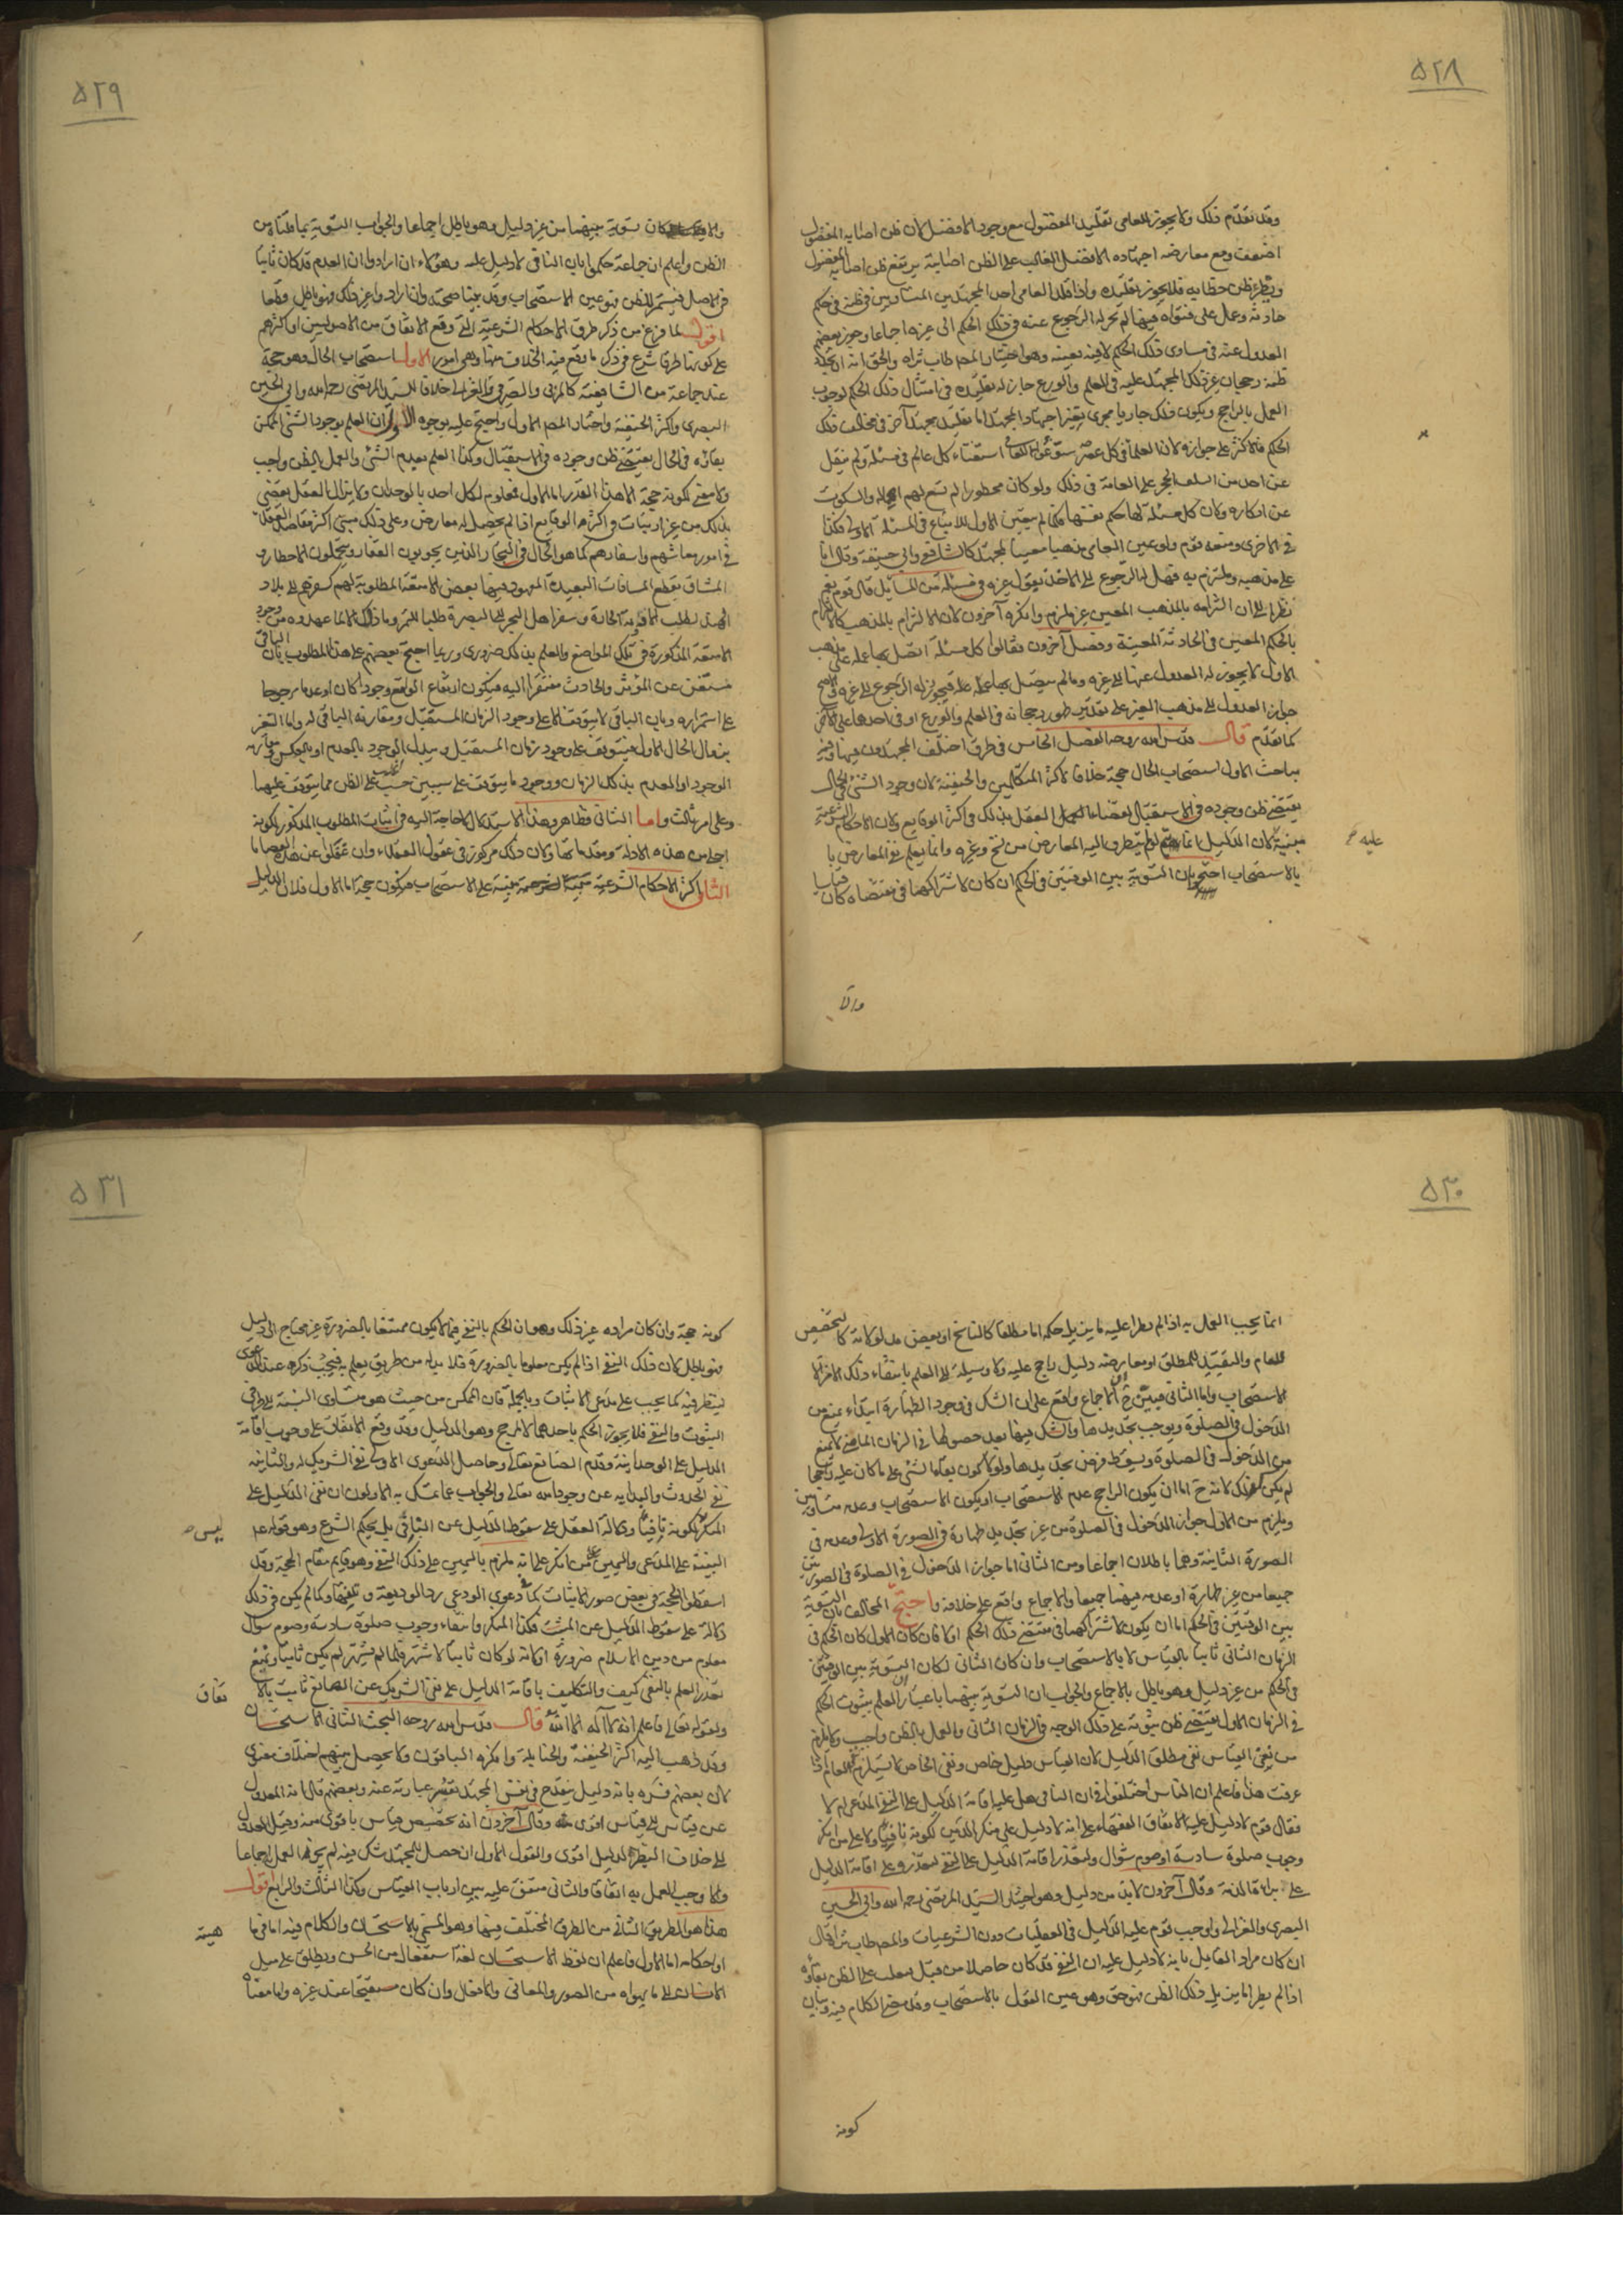 ٥٢٨
وقد تقدّم ذلك ولا يجوز للعامى تقليد المفضول مع وجود الافضل لان ظن اصابه المفضول
اضعف ومع معارضه اجتهاده الافضل الغالب على الظن اصابته يرتفع ظن اصابه المفضول
ظن خطائه فلا يجوز تقليده واذا قلد العامى احد المجتهدين المتساويين فى ظنه فى حكم
حادثه وعمل على فتواه فيها لم يجز له الرجوع عنه فى ذلك الحكم الى غيره اجماعا وجوز بعضهم
العدول عنه فى مساوى ذلك الحكم لا فيه بعينه وهو اختيار المصـ طاب ثراه والحق انه ان
ظنه رجحان غير ذلك المجتهد عليه فى العلم والورع جاز له تقليده فى امتثال ذلك الحكم لوجوب
العمل بالراجح ويكون ذلك جاريا مجرى تغير اجتهاد المجتهد اما تقليد مجتهد آخر فى مخالف ذلك
الحكم فالاكثر على جوازه لان العلماء فى كل عصر استفتاء كل عالم فى مسئلة ولم ينقل
عن احد من السلف الحجر على العامة فى ذلك ولو كان محظورا لم تسع لهم اهماله والسكوت
عن انكاره ولان كل مسئلة لها حكم نفسها فكما لم يتعين الاول للاتباع فى المسئلة الاولى فكذا
فى الاخرى ومنعه قوم ولو عين العامى مذهبا معينا لمجتهد كالشافعى وابى حنيفة وقال انا
على مذهبه وملتزم به فهل له الرجوع الى الاخذ بقول غيره فى مسئلة من المسائل قال قوم نعم
نظرا الى ان التزامه بالمذهب المعين غير ملزم وانكره آخرون لان الالتزام بالمذهب كالالتزام
بالحكم المعين فى الحادثة المعينة وفصل آخرون فقالوا كل مسئلة اتصل بها عمله على مذهب
الاول لا يجوز له العدول عنها الى غيره وما لم يتصل بها عمله فيجوز له الرجوع الى غيره
جواز العدول الى مذهب الغير على تقدير ظهور رجحانه فى العلم والورع او فى احدهما على الآخر
كما تقدّم قال قدس الله روحه الفصل الخامس فى طرق اختلف المجتهدون فيها وفيه
مباحث الاول استصحاب الحال حجة خلافا لاكثر المتكلمين والحنفية لان وجود الشئ فى الحال
يقتضى ظن وجوده فى الاستقبال لقضاء العقل بذلك فى اكثر الوقايع ولان الاحكام الشرعية
مبنية لان الدليل انما يتم لو لم يتطرق اليه المعارض من نسخ وغيره وانما يعلم نفى المعارض با
عليه
بالاستصحاب احتج بان التسوية بين الوقتين فى الحكم ان كان لاشتراكهما فى مقتضاه كان قياسا
والا
٥٢٩
والا كان تسوية بينهما من غير دليل وهو باطل اجماعا والجواب التسوية بما قلناه من
الظن واعلم ان جماعة حكموا بان النافى لا دليل عليه وهؤلاء ان ارادوا ان العدم قد كان ثابتا
فى الاصل فيستمر للظن فهو عين الاستصحاب وقد بينا صحته وان ارادوا غير ذلك فهو باطل قطعا
اقول لما فرغ من ذكر طرق الاحكام الشرعية التى وقع الاتفاق من الاصوليين او اكثرهم
على كونها طرقا شرع فى ذكر ما وقع فيه الخلاف منها وهى امور الاول استصحاب الحال وهو حجة
عند جماعة من الشافعية كالمزنى والصيرفى والغزالى خلافا للسيد المرتضى رحمه الله وابى الحسين
البصرى واكثر الحنفية واختار المصـ الاول واحتج عليه بوجوه الاول ان العلم بوجود الشئ الممكن
بقاؤه فى الحال يقتضى ظن وجوده فى الاستقبال وكذا العلم بعدم الشئ والعمل بالظن واجب
ولا معنى لكونه حجة الا هذا القدر اما الاول فمعلوم لكل احد بالوجدان ولا يزال العقل يقضى
بذلك من غير ارتياب فى اكثر الوقايع اذا لم يحصل له معارض وعلى ذلك مبنى اكثر مقاصد العقلاء
فى امور معاشهم واسفارهم كما هو الحال فى التجار الذين يجوبون القفار ويتحملون الاخطار و
المشاق بقطع المسافات البعيدة المعهود فيها بعض الامتعة المطلوبة لهم كسفرهم الى بلاد
الهند لطلب الادوية الحارة وسفر اهل البحر الى البصرة طلبا للتمر وما ذاك الا لما عهدوه من وجود
الامتعة المذكورة فى تلك المواضع والعلم بذلك ضرورى وربما احتج بعضهم على هذا المطلوب بان الباقى
مستغن عن المؤثر والحادث مفتقر اليه فيكون ارتفاع الواقع وجودا كان او عدما مرجوحا
على استمراره وبان الباقى لا يتوقف الا على وجود الزمان المستقبل ومقارنة الباقى له واما التغير
بزوال الحال الاول فيتوقف على وجود زمان المستقبل وتبدل الوجود بالعدم او بالعكس ومقارنة
الوجود او العدم بذلك الزمان ووجود ما يتوقف على شيئين حسب اغلب على الظن مما يتوقف عليهما
وعلى امر ثالث واما الثانى فظاهر وهذا الاستدلال لا حاجة اليه فى اثبات المطلوب المذكور لكونه
اجلى من هذه الادلة ومقدماتها ولان ذلك مركوز فى عقول العقلاء وان غفلوا عن هذه القضايا
الثانى اكثر الاحكام الشرعية مبنية على الاستصحاب فيكون حجة اما الاول فلان الدليل
٥٣٠
انما يجب العمل به اذا لم يطرأ عليه ما يزيل حكمه اما مطلقا كالناسخ او بعض مدلولاته كالتخصيص
للعام والتقييد للمطلق او معارضه دليل راجح عليه ولا وسيلة الى العلم بانتفاء ذلك الامر الا
الاستصحاب واما الثانى فبين ح ان الاجماع واقع على ان الشك فى وجود الطهارة ابتداء يمنع من
الدخول فى الصلوة ويوجب تجديدها والشك فيها بعد حصولها فى الزمان الماضى لا يمنع
من الدخول فى الصلوة ويسقط فرض تجديدها ولولا كون بقاء الشئ على ما كان عليه راجحا
لم يكن كذلك لانه ح اما ان يكون الراجح عدم الاستصحاب او يكون الاستصحاب وعدمه متساويين
ويلزم من الاول جواز الدخول فى الصلوة من غير تجديد طهارة فى الصورة الاولى وعدمه فى
الصورة الثانية وهما باطلان اجماعا ومن الثانى اما جواز الدخول فى الصلاة فى الصورتين
جميعا من غير طهارة او عدمه فيهما جميعا والاجماع واقع على خلافه واحتج المخالف بان التسوية
بين الوقتين فى الحكم اما ان يكون لاشتراكهما فى مقتضى ذلك الحكم او لا فان كان الاول كان الحكم فى
الزمان الثانى ثابتا بالقياس لا بالاستصحاب وان كان الثانى لكان التسوية بين الوقتين
فى الحكم من غير دليل وهو باطل بالاجماع والجواب ان التسوية بينهما باعتبار ان العلم بثبوت الحكم
فى الزمان الاول يقتضى ظن ثبوته على ذلك الوجه فى الزمان الثانى والعمل بالظن واجب ولا يلزم
من نفى القياس نفى مطلق الدليل لان القياس دليل خاص ونفى الخاص لا يستلزم نفى العام اذا
عرفت هذا فاعلم ان الناس اختلفوا فى ان النافى هل عليه اقامة الدليل على النفى المدعى ام لا
فقال قوم لا دليل عليه لاتفاق الفقهاء على انه لا دليل على منكر الدين لكونه نافيا ولا على من انكر
وجوب صلوة سادسة او صوم شوال ولتعذر اقامة الدليل على النفى لتعذره على اقامة الدليل
على براءة الذمة وقال آخرون لا بد من دليل وهو اختيار السيد المرتضى رحمه الله وابى الحسين
البصرى والغزالى واوجب قوم عليه الدليل فى العقليات دون الشرعيات والمصـ طاب ثراه قال
ان كان مراد القايل بانه لا دليل عليه ان النفى قد كان حاصلا من قبل يغلب على الظن بقاؤه
اذا لم يطرأ ما يزيل ذلك الظن فهو حق وهو عين القول بالاستصحاب وقد مضى الكلام فيه وبيان
كونه
٥٣١
كونه حجة وان كان مراده غير ذلك وهو ان الحكم بالنفى فيما لا يكون ممتنعا بالضرورة غير محتاج الى دليل
فهو باطل لان ذلك النفى اذا لم يكن معلوما بالضرورة فلا بد له من طريق يعلم به فيجب ذكره عند الدعوى
لينظر فيه كما يجب على مدعى الاثبات وبالجملة فان الممكن من حيث هو متساوى النسبة الى طرفى
الثبوت والنفى فلا يجوز الحكم باحدهما الا لمرجح وهو الدليل وقد وقع الاتفاق على وجوب اقامة
الدليل على الوحدانية وقدم الصانع تعالى وحاصل الدعوى الاولى نفى الشريك له والثانية
نفى الحدوث والبدايه عن وجود الله تعالى والجواب عما تمسك به الاولون ان نفى الدليل على
المنكر لكونه نافيا ودلالة العقل على سقوط الدليل عن النافى بل بحكم الشرع وهو قوله عم
ليس
البينة على المدعى واليمين على من انكر على انه يلزم باليمين على ذلك النفى وهو قايم مقام الحجة وقد
اسقطوا الحجة فى بعض صور الاثبات كما فى دعوى الودعى رد الوديعة وتلفها وكما لم يكن فى ذلك
دلالة على سقوط الدليل عن المثبت فكذا المنكر وانتفاء وجوب صلوة سادسة وصوم شوال
معلوم من دين الاسلام ضرورة او لانه لو كان ثابتا لاشتهر فلما لم يشتهر لم يكن ثابتا ونمنع
تعذر العلم بالنفى كيف والتكليف باقامة الدليل على نفى الشريك عن الصانع ثابت بالا
تفاق
ولقوله تعالى فاعلم انه لا اله الا الله قال قدس الله روحه البحث الثانى الاستحسان
وقد ذهب اليه اكثر الحنفية والحنابلة وانكره الباقون ولا يحصل بينهم اختلاف معنوى
لان بعضهم فسره بانه دليل ينقدح فى نفس المجتهد تقصر عبارته عنه وبعضهم قال انه العدول
عن قياس الى قياس اقوى منه وقال آخرون انه تخصيص قياس باقوى منه وقيل العدول
الى خلاف النظير لدليل اقوى والقول الاول ان حصل للمجتهد شك فيه لم يجز له العمل اجماعا
والا وجب العمل به اتفاقا والثانى متفق عليه بين ارباب القياس وكذا الثالث والرابع اقول
هذا هو الطريق الثانى من الطرق المختلف فيها وهو المسمى بالاستحسان والكلام فيه اما فى ما
هيته
او احكامه اما الاول فاعلم ان لفظ الاستحسان لغة استفعال من الحسن ويطلق على ميل
الانسان الى ما يهواه من الصور والمعانى والافعال وان كان مستقبحا عند غيره واما معناه